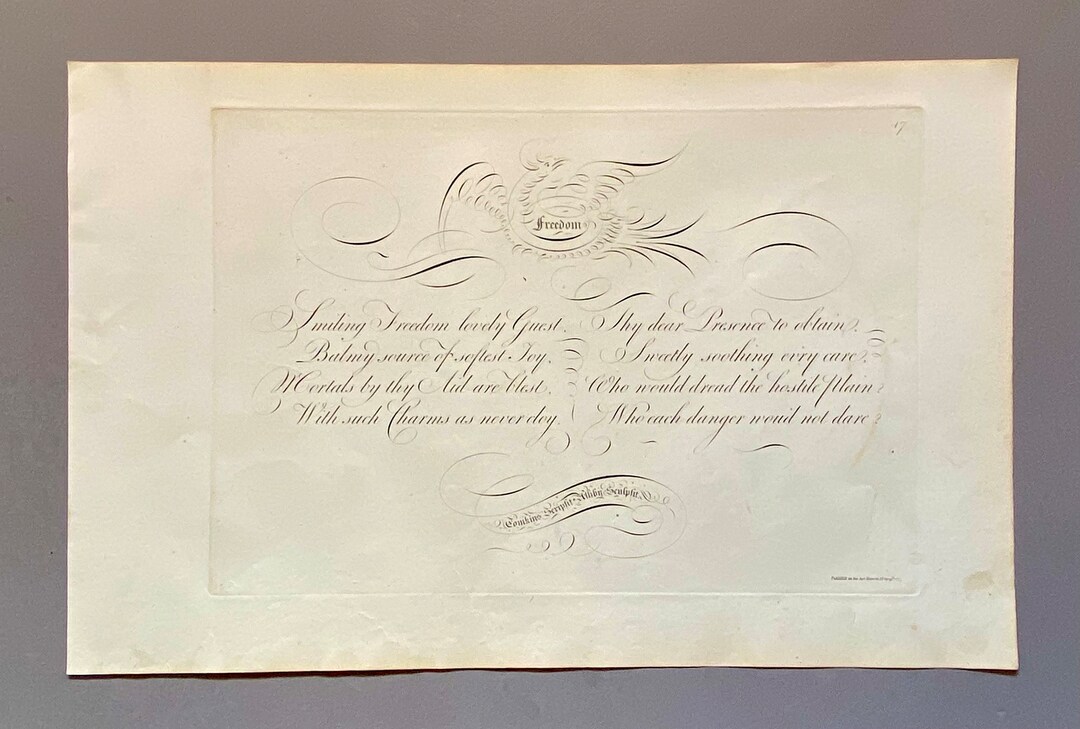 17
Freedom
Smiling Freedom lovely Guest.
Balmy source of softest Joy,
Mortals by thy Aid are blest,
With such Charms as never cloy.
Thy dear Presence to obtain,
Sweetly soothing ev'ry care,
Who would dread the hostile Plain?
Who each danger would not dare?
Tomkins Scripsit. Ashby Sculpsit.
Publish'd as the Act directs